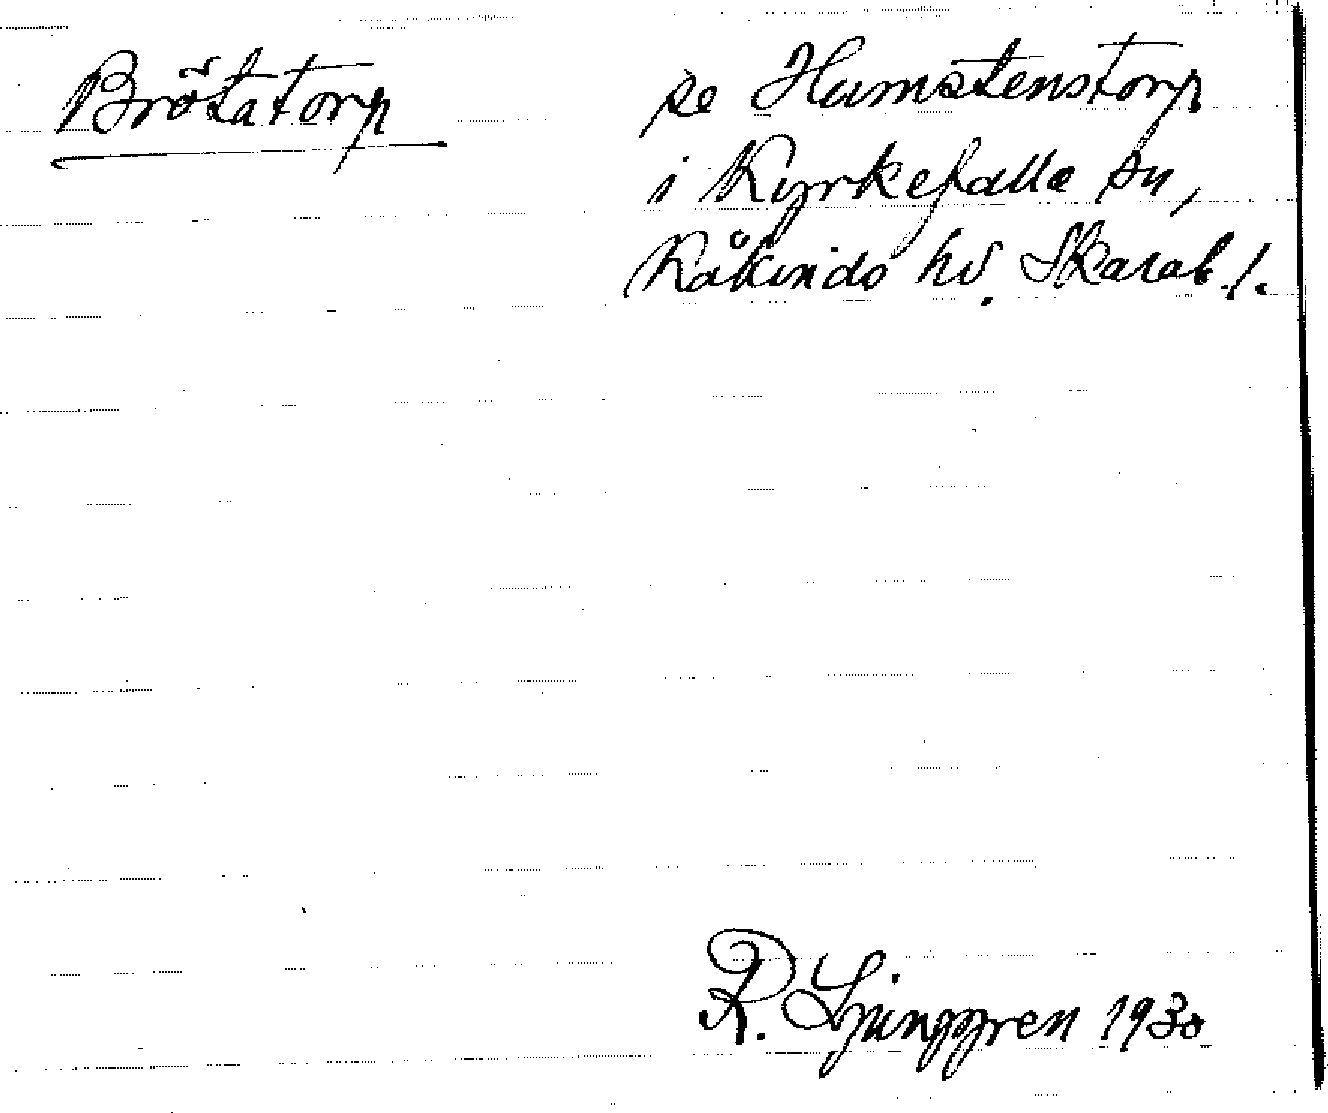 Brötatorp
se Humstenstorp
i Kyrkefalla sn,
Kåkinds hd. Skarab. l.
R. Ljunggren 1930